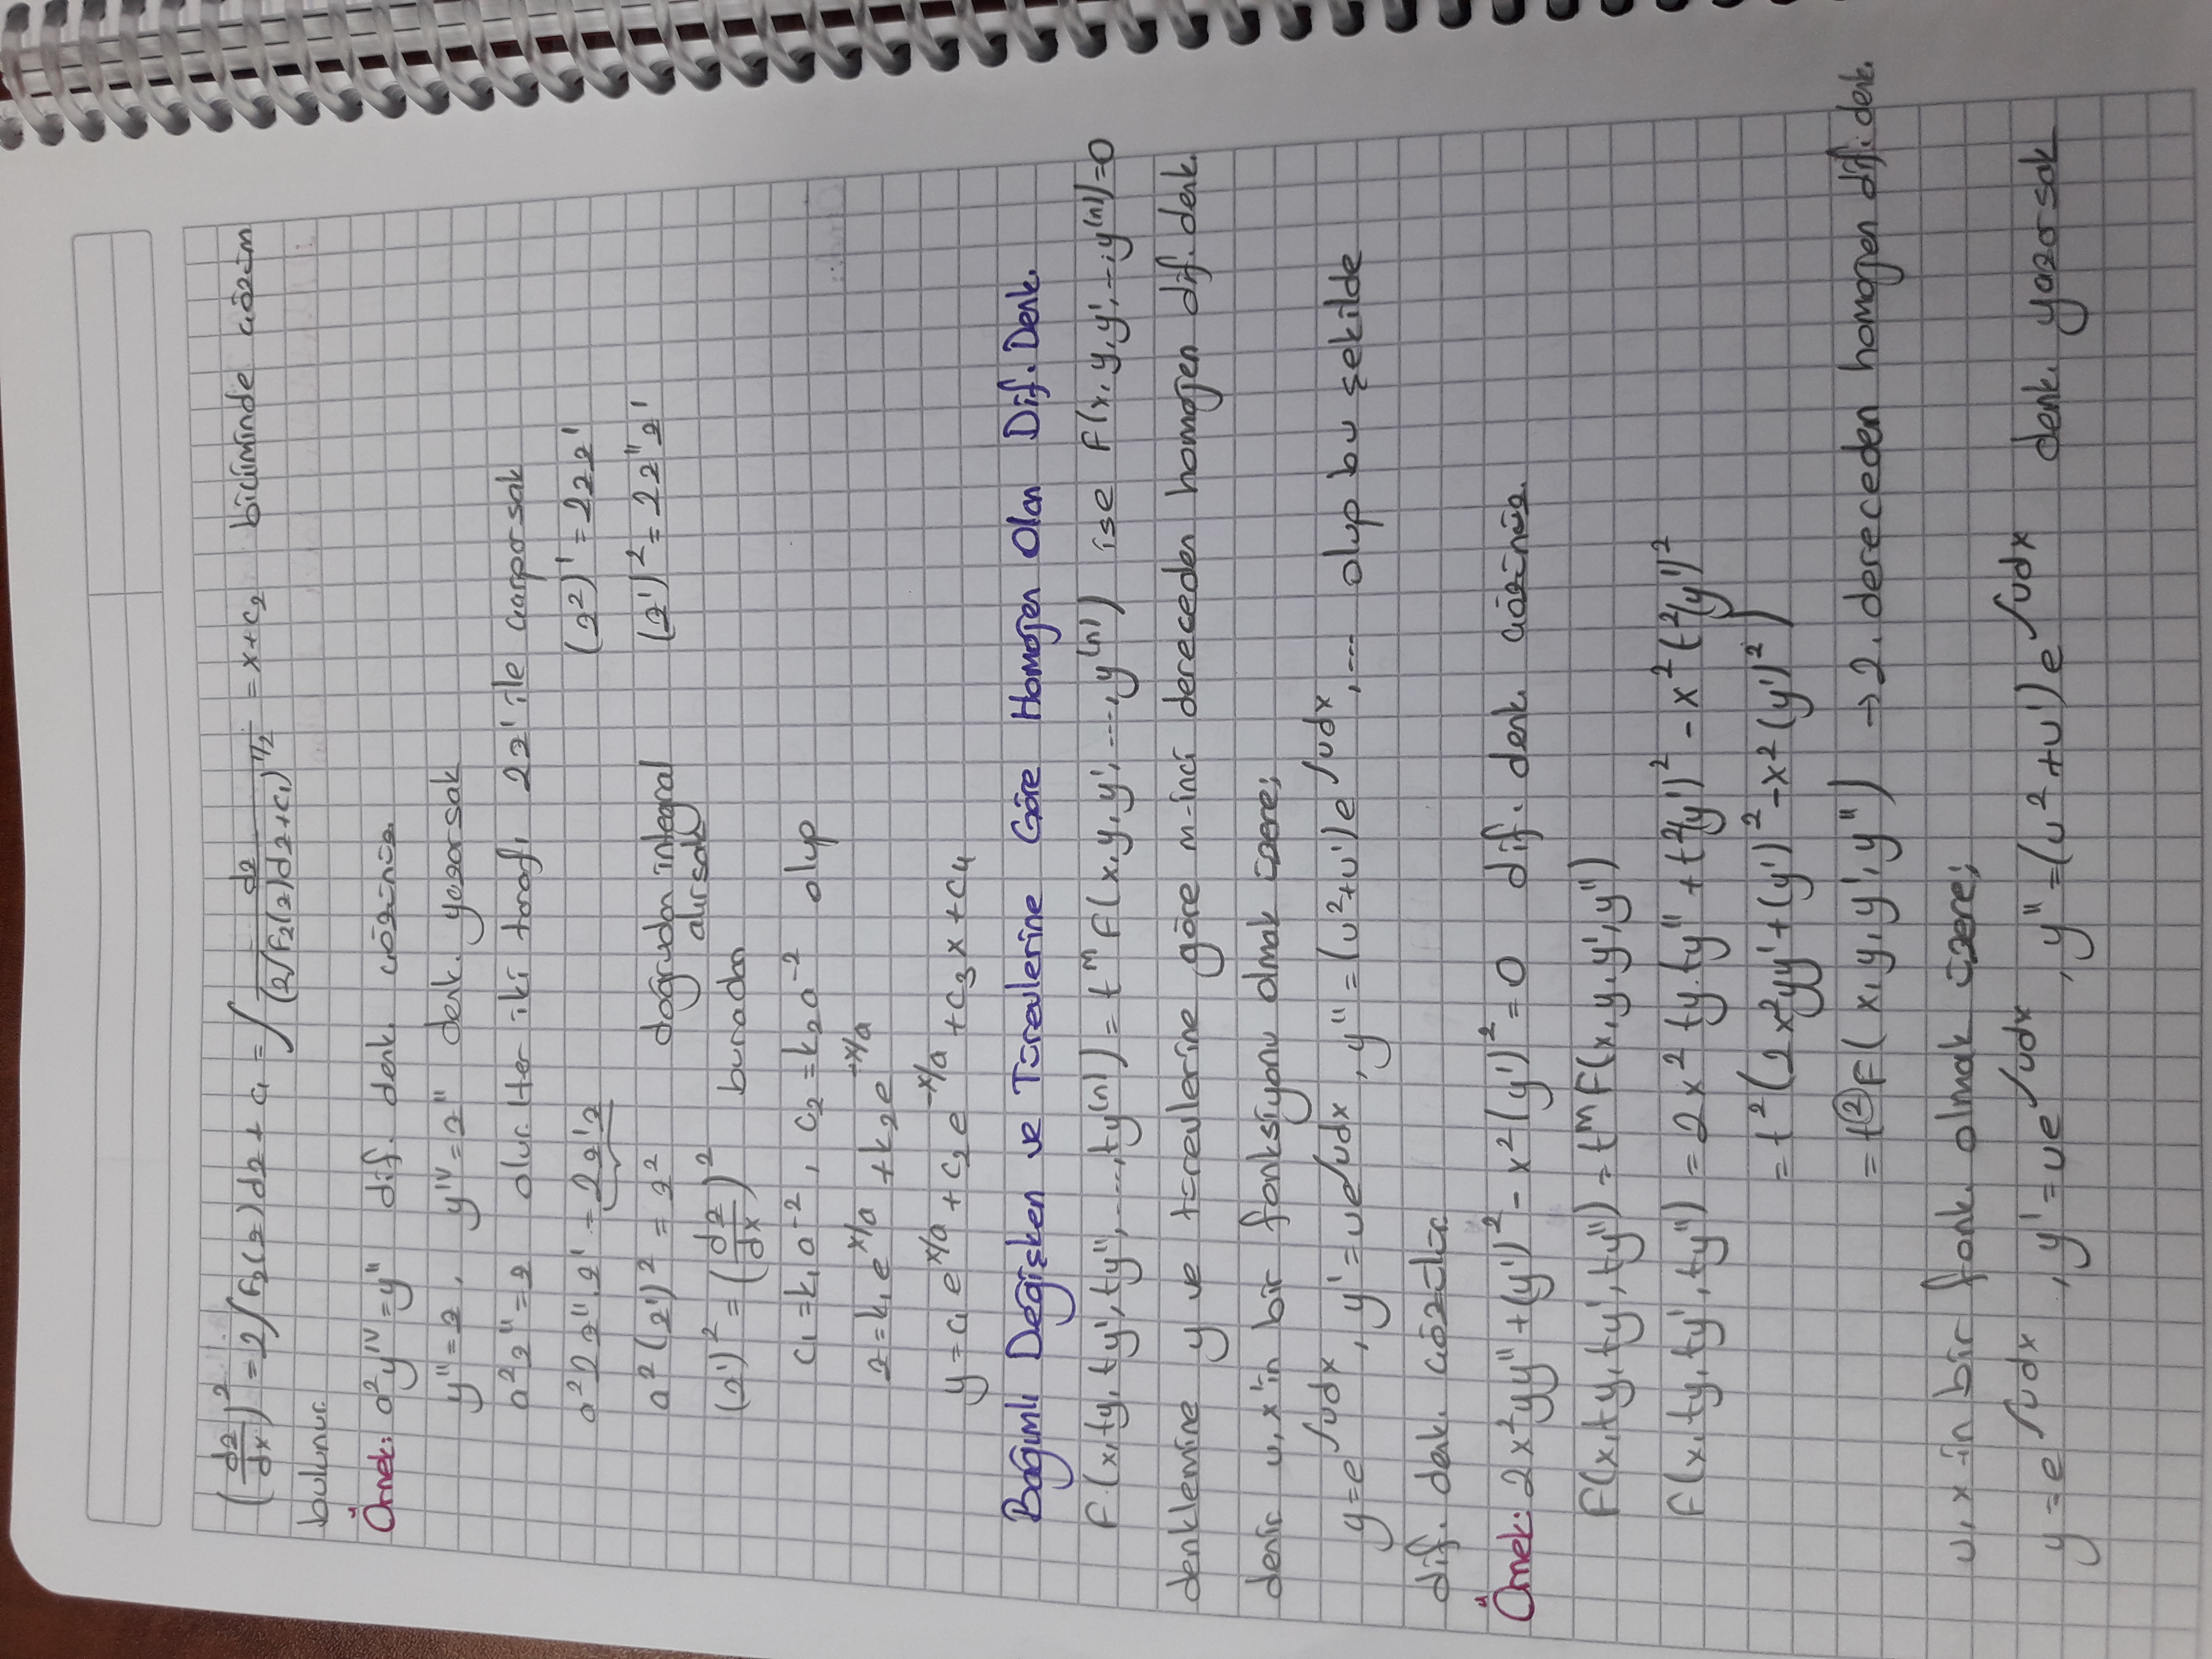 (dz/dx)² = 2∫F₂(z)dz + c₁ = ∫ dz/(2∫F₂(z)dz+c₁)^1/2 = x+c₂ biçiminde çözüm
bulunur.
Örnek: a²yᴵⱽ=y'' dif. denk. çözünüz
y''=z, yᴵⱽ=z'' denk. yazarsak
a²z''=z olur. Her iki tarafı 2z' ile çarparsak
a²2z''.z' = 2z'z (z²)' = 2zz'
a²(z')² = z² doğrudan integral (z')² = 2z''z'
alırsak
(z')² = (dz/dx)² buradan
c₁=k₁a⁻², c₂=k₂a⁻² olup
z=k₁e^x/a + k₂e^-x/a
y=c₁e^x/a + c₂e^-x/a + c₃x + c₄
Bağımlı Değişken ve Türevlerine Göre Homojen Olan Dif. Denk.
F(x,ty,ty',ty'',...,ty⁽ⁿ⁾) = tᵐF(x,y,y',...,y⁽ⁿ⁾) ise F(x,y,y',...,y⁽ⁿ⁾)=0
denklemine y ve türevlerine göre m-inci dereceden homojen dif. denk.
denir u, x'in bir fonksiyonu olmak üzere;
y=e^∫udx, y'=ue^∫udx, y''=(u²+u')e^∫udx, ... olup bu şekilde
dif. denk. çözülür.
Örnek: 2x²yy''+(y')²-x²(y')²=0 dif. denk. çözünüz.
F(x,ty,ty',ty'') = tᵐF(x,y,y',y'')
F(x,ty,ty',ty'') = 2x² ty.ty'' + t²(y')² - x² t²(y')²
= t²(2x²yy'+(y')²-x²(y')²)
= t²F(x,y,y',y'') → 2. dereceden homojen dif. denk.
u, x in bir fonk. olmak üzere;
y=e^∫udx, y'=ue^∫udx, y''=(u²+u')e^∫udx denk. yazarsak